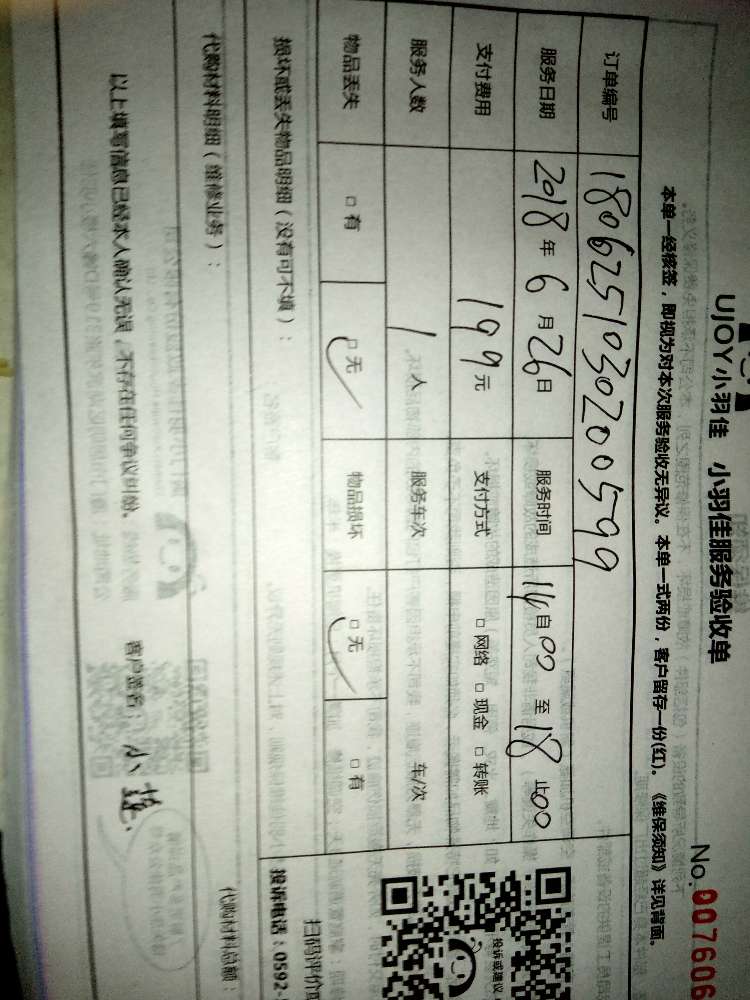 UJOY小羽佳 小羽佳服务验收单
No. 007606
本单一经核签，即视为对本次服务验收无异议。本单一式两份，客户留存一份(红)。《维保须知》详见背面。
订单编号 1806251030200599
服务日期 2018年6月26日 服务时间 14自00至18止00
支付费用 199元 支付方式 □网络 □现金 □转账
服务人数 1人 服务车次 车/次
物品丢失 □有 □无 物品损坏 □无 □有
投诉或建议
扫码评价
投诉电话：0592-
损坏或丢失物品明细（没有可不填）：
代购材料明细（维修业务）： 代购材料总额：
以上填写信息已经本人确认无误，不存在任何争议纠纷。 客户签名：小莲